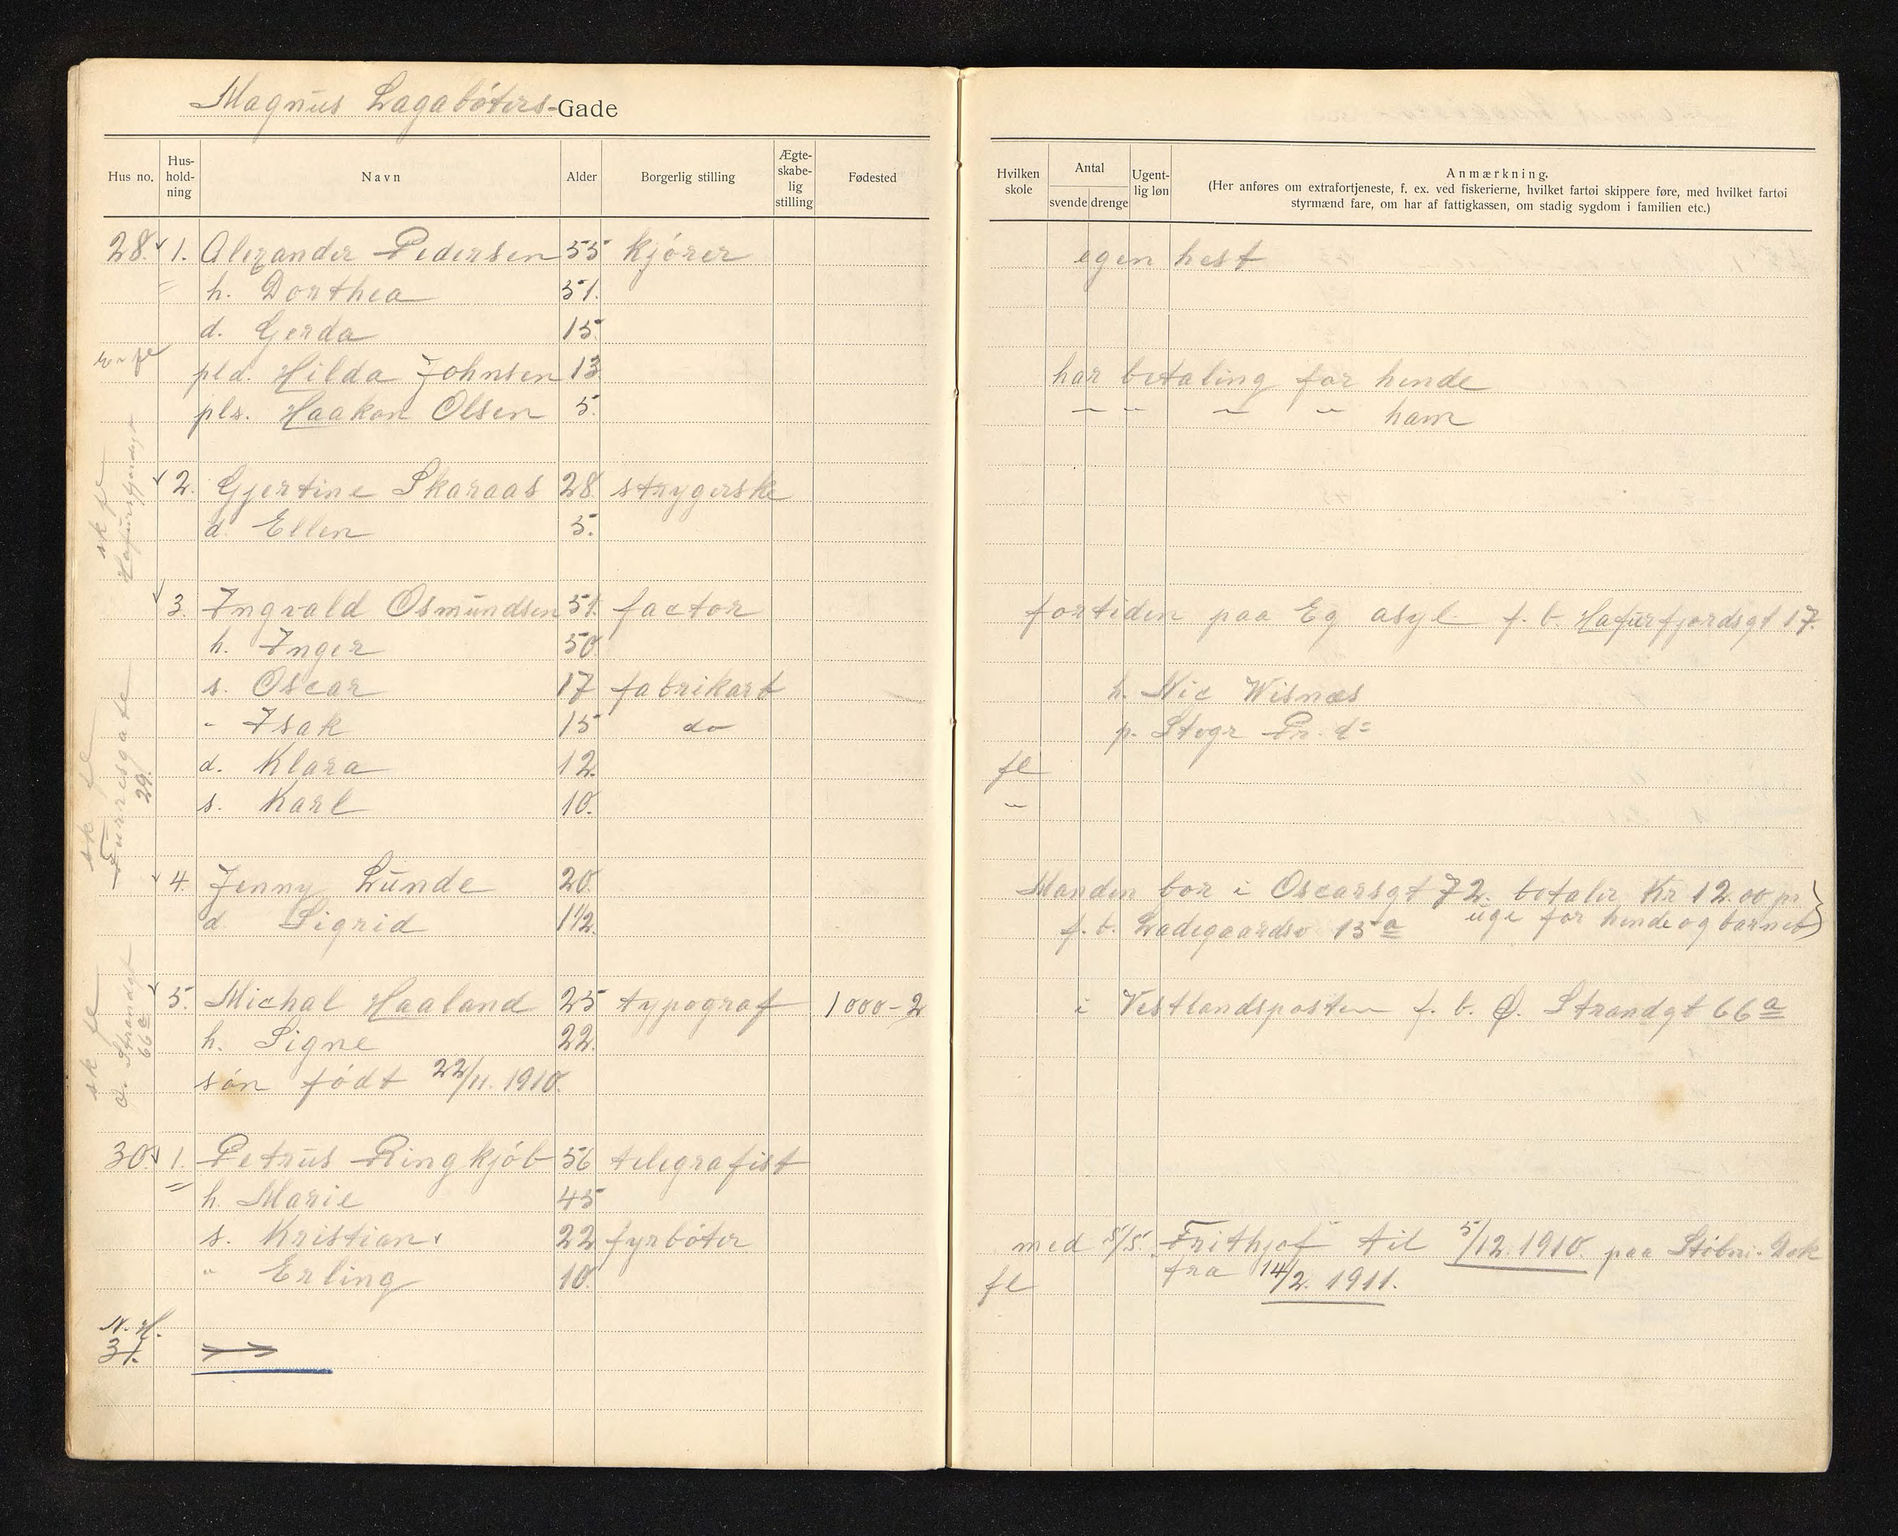 Magnus Lagabøters-Gade
Hus no. Hus-hold-ning Navn Alder Borgerlig stilling Ægte-skabe-lig stilling Fødested
Hvilken skole Antal svende drenge Ugent-lig løn Anmærkning.
(Her anføres om extrafortjeneste, f. ex. ved fiskerierne, hvilket fartøi skippere føre, med hvilket fartøi
styrmænd fare, om har af fattigkassen, om stadig sygdom i familien etc.)
28. 1. Alexander Pedersen 55 kjører egen hest
h. Dorthea 51.
d. Gerda 15
pld. Hilda Johnsen 13 har betaling for hende
pls. Haakon Olsen 5. " " " " ham
sk fl Hafursfjordsgt
2. Gjertine Skaraas 28 strygerske
d. Ellen 5.
3. Ingvald Osmundsen 51. factor fortiden paa Eg asyl f. b. Hafursfjordsgt 17.
h. Inger 50
s. Oscar 17 fabrikarb h. Nic Wisnæs
" Isak 15 do p. Stogr Pr. d=
d. Klara 12. fl
s. Karl 10. "
sk fl
29.
4. Jenny Lunde 20. Manden bor i Oscarsgt 72. betaler Kr 12.00 pr
d. Sigrid 1 1/2. f. b. Ladegaardsv 15a uge for hende og barnet}
sk fl Ø. Strandgt 66a
5. Michal Haaland 25 typograf 1000-2 i Vestlandsposten f. b. Ø. Strandgt 66a
h. Signe 22.
søn født 22/11. 1910.
30. 1. Petrus Ringkjøb 56 telegrafist
h. Marie 45
s. Kristian 22 fyrbøter med 5/5. Frithjof til 5/12. 1910. paa Støberi. Dok
" Erling 10. fl fra 14/2. 1911.
N. H.
31.